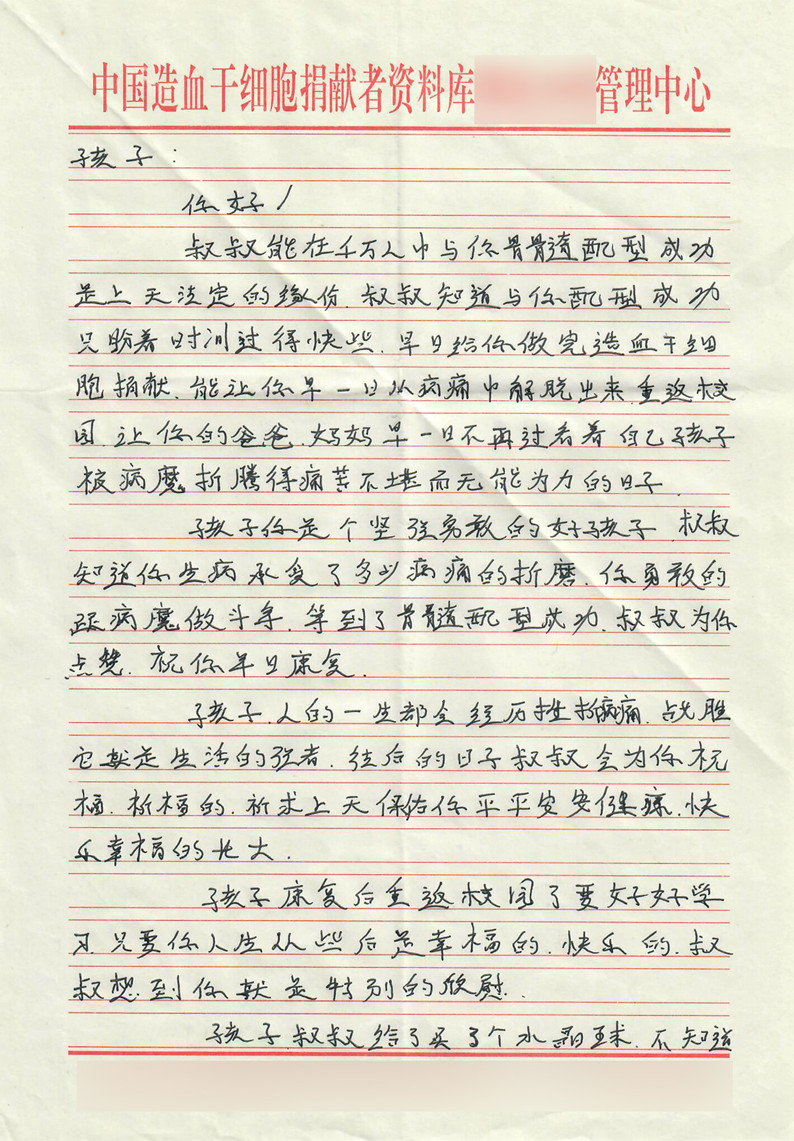 中国造血干细胞捐献者资料库 管理中心
孩子：
你好！
叔叔能在千万人中与你骨骨髓配型成功
是上天法定的缘份.叔叔知道与你配型成功
只盼着时间过得快些.早日给你做完造血干细
胞捐献.能让你早一日从病痛中解脱出来.重返校
园.让你的爸爸.妈妈早一日不再过看着自己孩子
被病魔折腾得痛苦不堪而无能为力的日子.
孩子你是个坚强勇敢的好孩子 叔叔
知道你生病承受了多少病痛的折磨.你勇敢的
跟病魔做斗争.等到了骨髓配型成功.叔叔为你
点赞.祝你早日康复.
孩子.人的一生都会经历挫折病痛.战胜
它就是生活的强者.往后的日子叔叔会为你祝
福.祈福的.祈求上天保佑你平平安安健康.快
乐幸福的长大.
孩子康复后重返校园了要好好学
习.只要你人生从些后是幸福的.快乐的.叔
叔想到你就是特别的欣慰..
孩子叔叔给了买了个水晶球.不知道